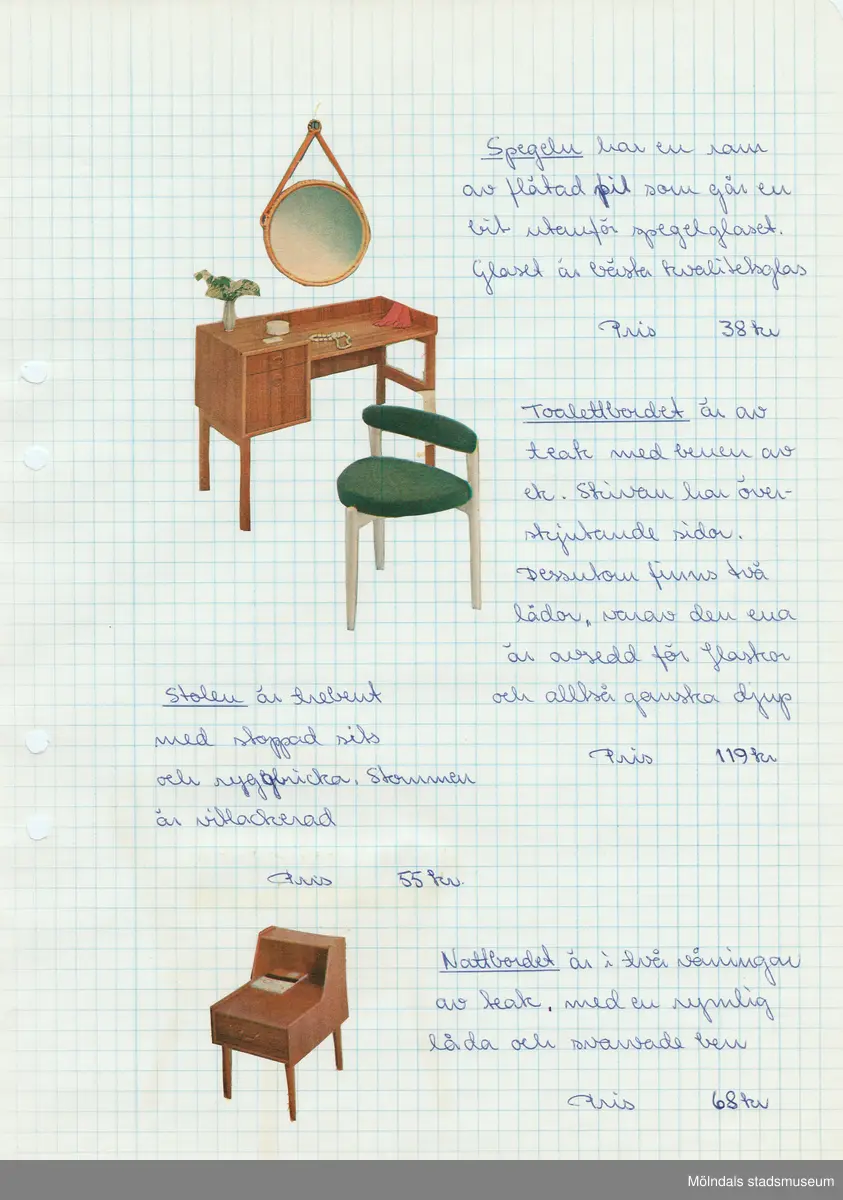 Spegeln har en ram
av flätad pil som går en
bit utanför spegelglaset.
Glaset är bästa kvalitetsglas
Pris 38 kr
Toalettbordet är av
teak med benen av
ek. Skivan har över-
skjutande sidor.
Dessutom finns två
lådor, varav den ena
är avsedd för flaskor
och alltså ganska djup
Pris 119 kr
Stolen är trebent
med stoppad sits
och ryggbricka. Stommen
är vitlackerad
Pris 55 kr.
Nattbordet är i två våningar
av teak, med en rymlig
låda och svarvade ben
Pris 68 kr
Mölndals stadsmuseum